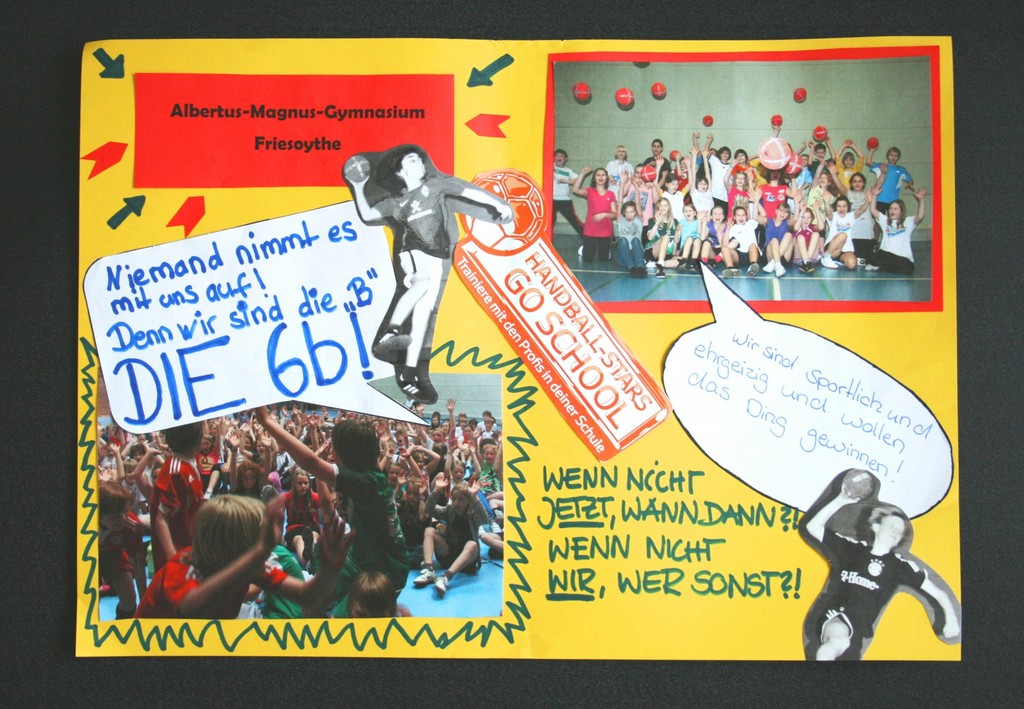 Albertus-Magnus-Gymnasium
Friesoythe
Niemand nimmt es
mit uns auf!
Denn wir sind die „B"
DIE 6b!
HANDBALL-STARS
GO SCHOOL
Trainiere mit den Profis in deiner Schule
Wir sind sportlich und
ehrgeizig und wollen
das Ding gewinnen!
WENN NICHT
JETZT, WÄNN DANN?!
WENN NICHT
WIR, WER SONST?!